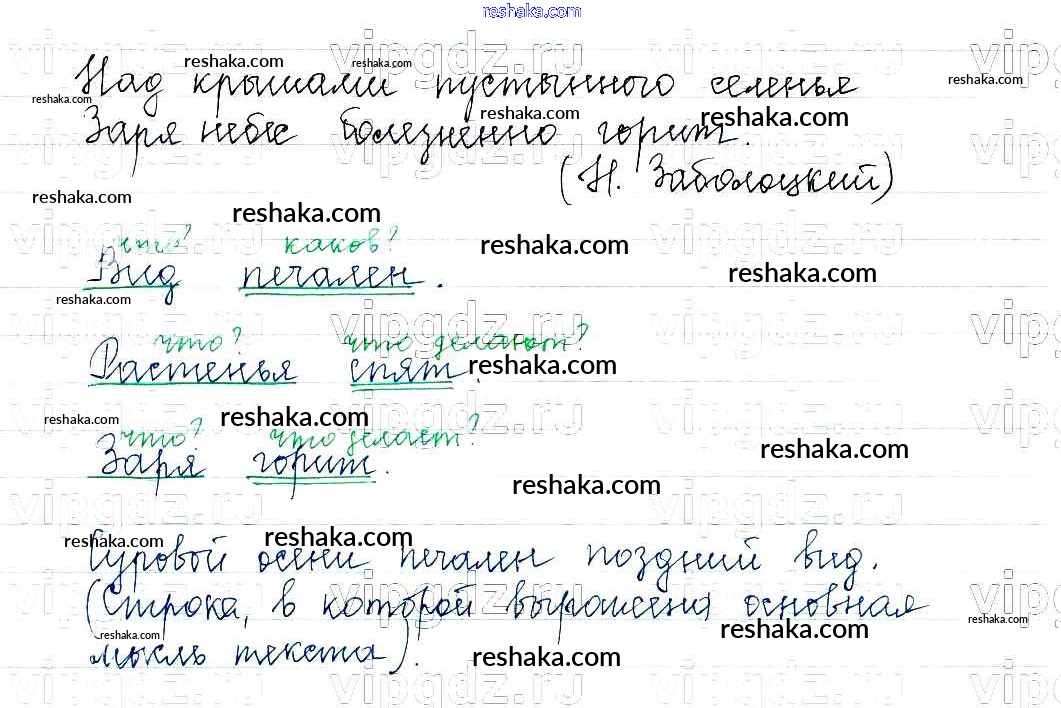 Над крышами пустынного селенья
Заря небес болезненно горит.
(Н. Заболоцкий)
что? каков?
Вид печален.
что? что делают?
Растенья спят.
что? что делает?
Заря горит.
Суровой осени печален поздний вид.
(Строка, в которой выражена основная
мысль текста).